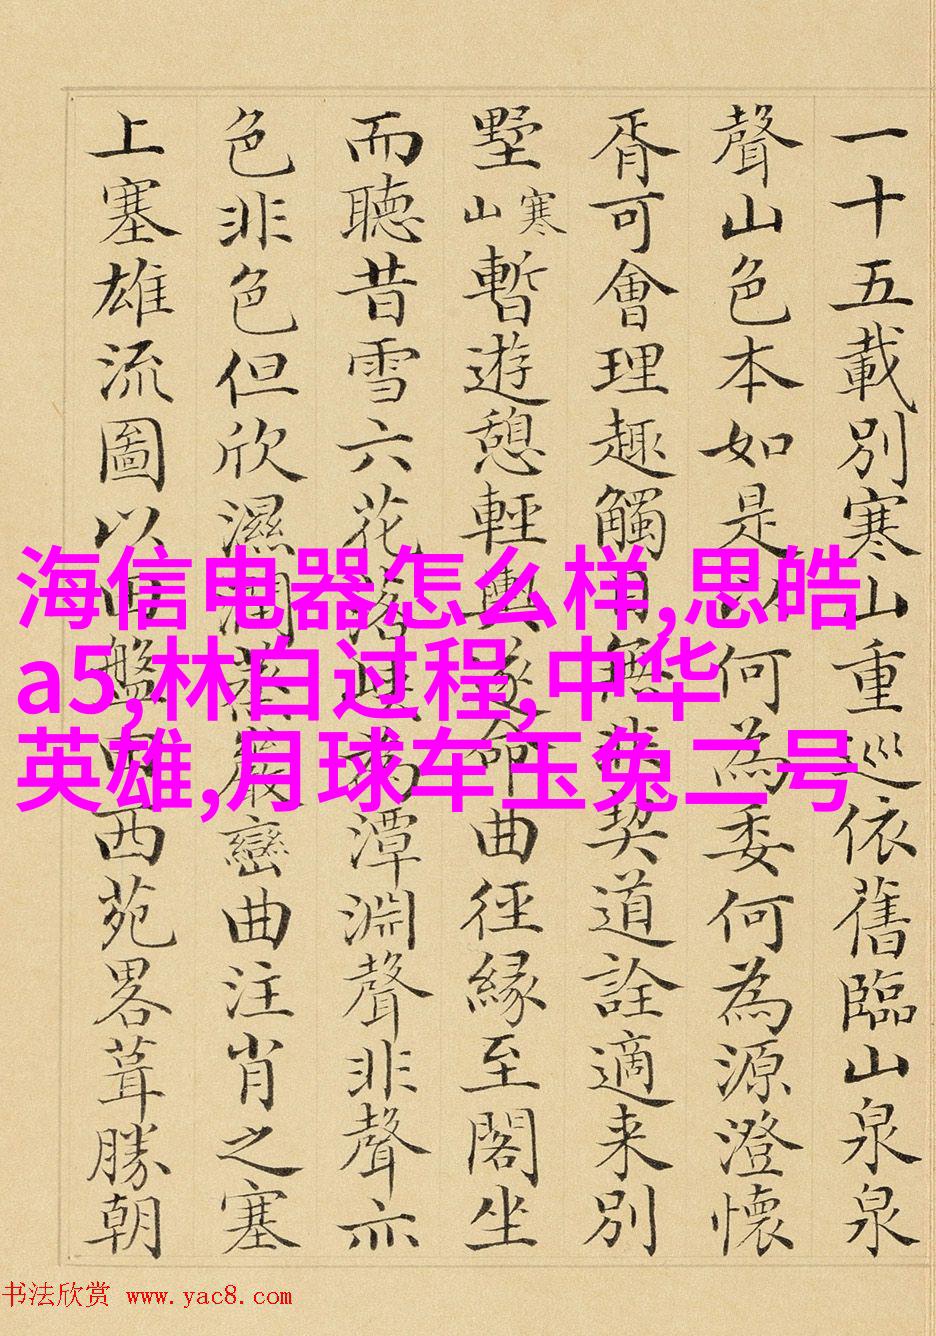 一十五載別寒山重巡依舊臨山泉泉
聲山色本如是以何為委何為源澄懷
胥可會理趣觸目無非契道詮適来別
墅寒山暫遊憩輕輿遂命曲徑緣至閣坐
而聽昔雪六花落潭淵聲非聲亦
色非色但欣濕潤蒸巖巒曲注肖之塞
上塞雄流圖以盤西苑畧葺勝朝
海信电器怎么样,思皓
a5,林白过程,中华
英雄,月球车玉兔二号
书法欣赏 www.yac8.com